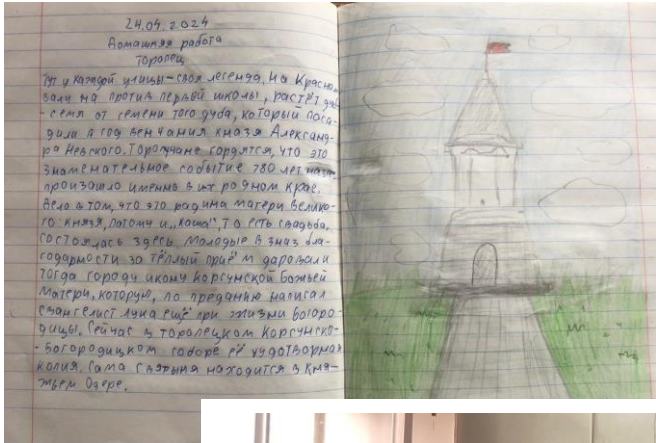 24.04.2024
Домашняя работа
Торопец
Тут у каждой улицы - своя легенда. На Красном
валу на против первой школы, растёт дуб
- семя от семени того дуба, который поса-
дили в год венчания князя Александ-
ра Невского. Торопчане гордятся, что это
знаменательное событие 780 лет назад
произашло именно в их родном крае.
Дело в том, что это радина матери велико-
го князя, потому и "каша", то есть свадьба,
состоялась здесь. Молодые в знак бла-
годарности за тёплый приём даровали
тогда городу икону Корсунской Божьей
Матери, которую, по преданию написал
евангелист Лука ещё при жизни Богоро-
дицы. Сейчас в торопецком Корсунско-
-Богородицком соборе её чудотворная
копия. Сама святыня находится в Кня-
жьем Озере.